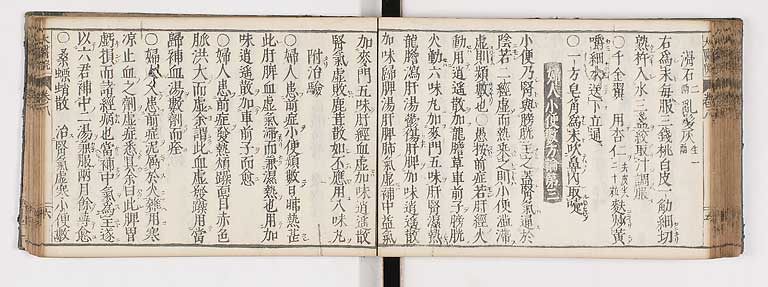 滑石二兩 亂髮灰一兩
右爲末每服三錢桃白皮一觔細切
熟杵入水三盞絞取汁調服
○千金翼 用杏仁二十粒去皮尖麩炒黃
嚼細水送下立通
○一方皂角爲末吹鼻內取嚏
婦人小便數方論第三
小便乃腎與膀胱主之蓋腎氣通於
陰若二經虛而熱乘之則小便澁滯
虛則頻數也○愚按前症若肝經火
動用逍遙散加龍膽草車前子膀胱
火動六味丸加麥門五味肝腎濕熱
龍膽瀉肝湯鬱傷肝脾加味逍遙散
加味歸脾湯肝脾肺氣虛補中益氣
加麥門五味肝經血虛加味逍遙散
腎氣虛敗鹿茸散如不應用八味丸
附治驗
○婦人患前症小便頻數日晡熱甚
此肝脾血虛氣滯而兼濕熱也用加
味逍遙散加車前子而愈
○婦人患前症發熱煩躁面目赤色
脉洪大而虛余謂此血虛發躁用當
歸補血湯數劑而痊
○婦人患前症泥屬於火雜用寒
凉止血之劑虛症悉具余曰此脾胃
虧損而諸經病也當補中氣爲主遂
以六君補中二湯兼服兩月餘尋愈
○桑螵蛸散 治腎氣虛寒小便數